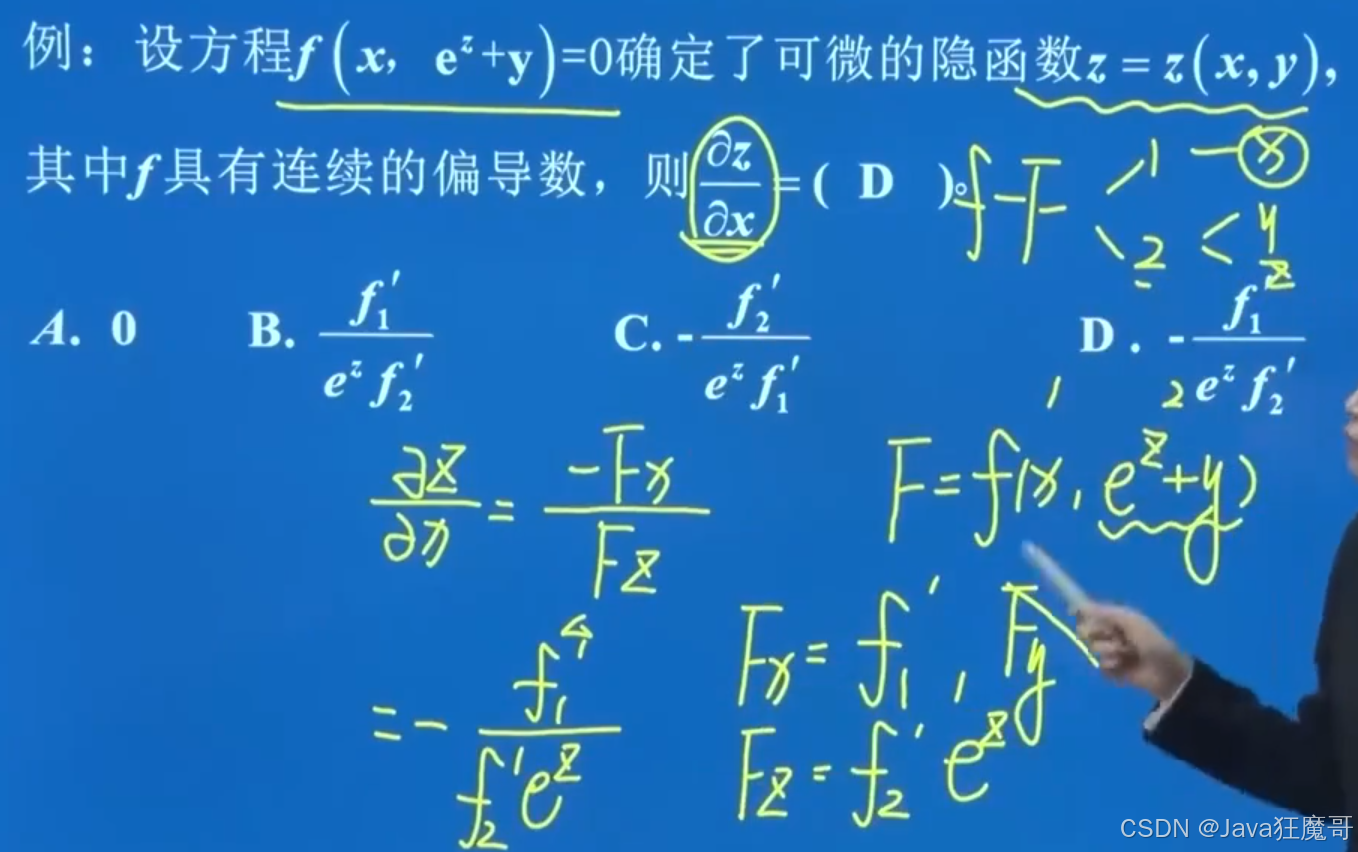 例：设方程f(x, e^z+y)=0确定了可微的隐函数z = z(x, y),
其中f具有连续的偏导数，则∂z/∂x=( D )。
f-F 1 — x
2 < y z
A. 0 B. f₁′/(e^z f₂′) C. -f₂′/(e^z f₁′) D. -f₁′/(e^z f₂′)
1 2
∂z/∂x = -Fx/Fz F=f(x, e^z+y)
= - f₁′/(f₂′e^z) Fx = f₁′, Fy
Fz = f₂′ e^z
CSDN @Java狂魔哥